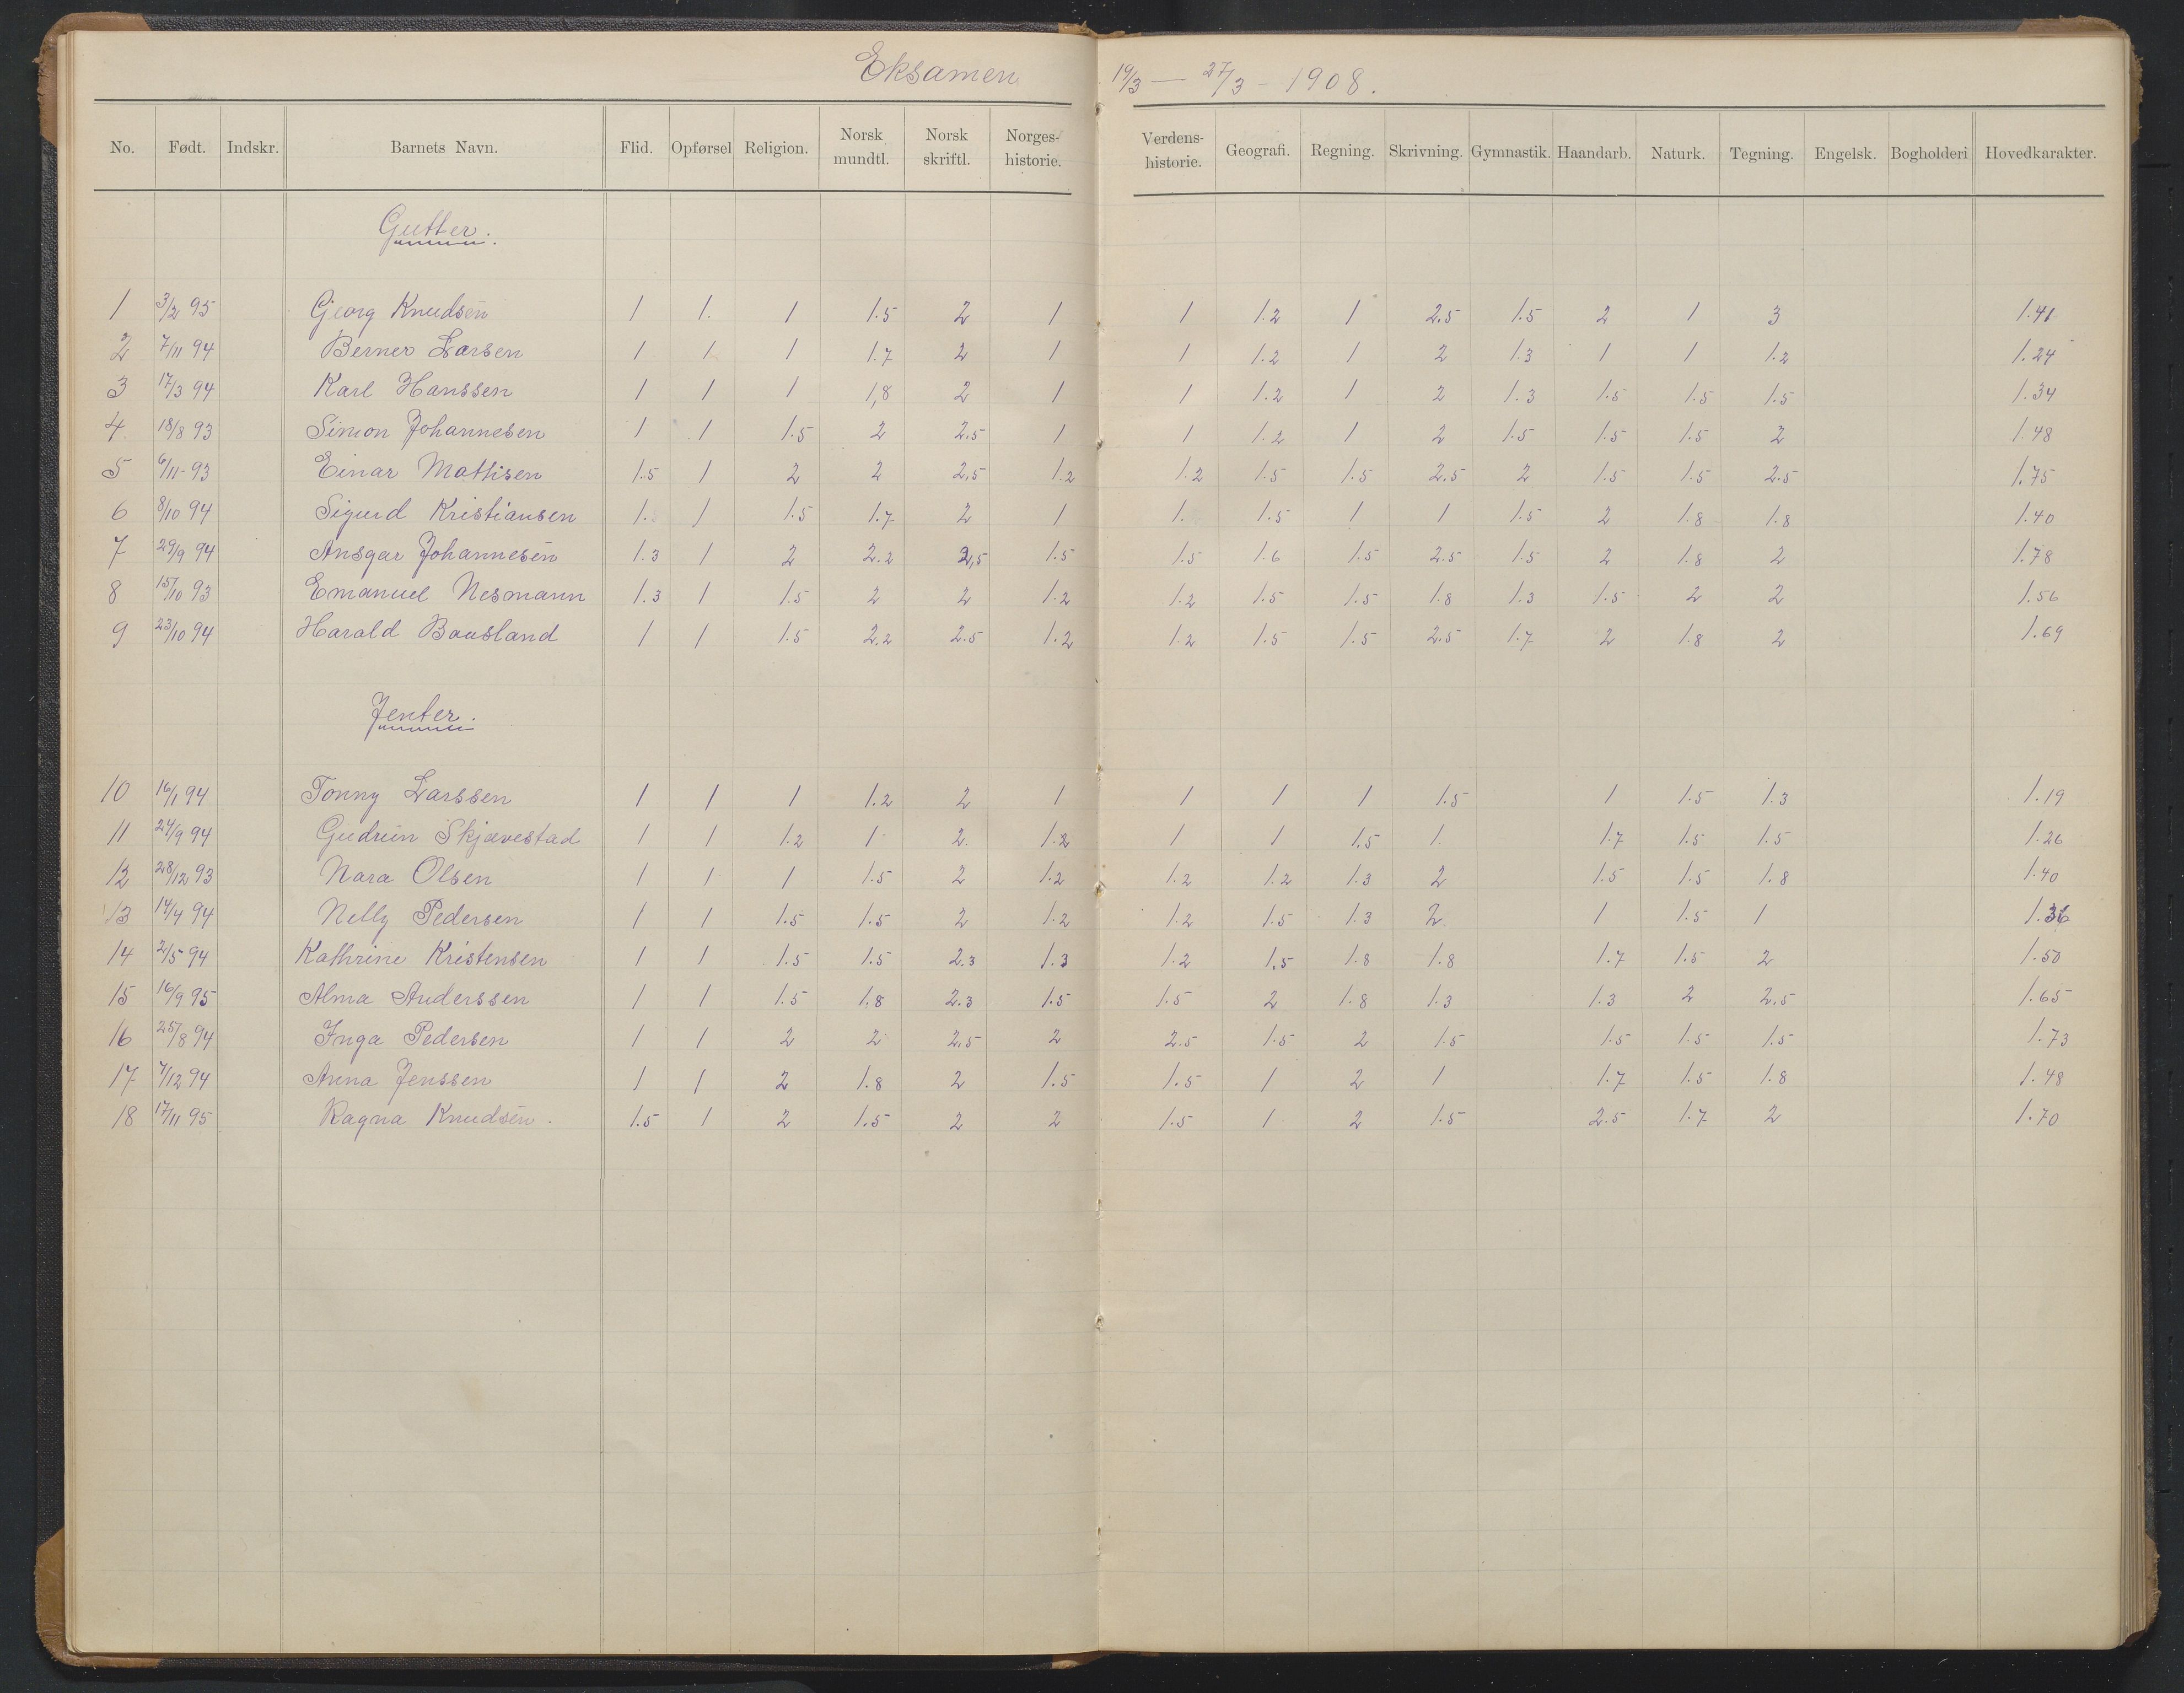 Eksamen 19/3 — 27/3 - 1908.
No. Født. Indskr. Barnets Navn. Flid. Opførsel Religion. Norsk mundtl. Norsk skriftl. Norges-historie. Verdens-historie. Geografi. Regning. Skrivning. Gymnastik. Haandarb. Naturk. Tegning. Engelsk. Bogholderi Hovedkarakter.
Gutter.
1 3/2 95 Georg Knudsen 1 1. 1 1.5 2 1 1 1.2 1 2.5 1.5 2 1 3 1.41
2 7/11 94 Berner Larsen 1 1 1 1.7 2 1 1 1.2 1 2 1.3 1 1 1.2 1.24
3 17/3 94 Karl Hanssen 1 1 1 1,8 2 1 1 1.2 1 2 1.3 1.5 1.5 1.5 1.34
4 18/8 93 Simon Johannesen 1 1 1.5 2 2.5 1 1 1.2 1 2 1.5 1.5 1.5 2 1.48
5 6/11-93 Einar Mathisen 1.5 1 2 2 2,5 1.2 1.2 1.5 1.5 2.5 2 1.5 1.5 2.5 1.75
6 8/10 94 Sigurd Kristiansen 1. 1 1.5 1.7 2 1 1. 1.5 1 1 1.5 2 1.8 1.8 1.40
7 29/9 94 Ansgar Johannesen 1.3 1 2 2.2 2,5 1.5 1.5 1.6 1.5 2.5 1.5 2 1.8 2 1.78
8 15/10 93 Emanuel Nesmann 1.3 1 1.5 2 2 1.2 1.2 1.5 1.5 1.8 1.3 1.5 2 2 1.56
9 23/10 94 Harald Bausland 1 1 1.5 2.2 2.5 1.2 1.2 1.5 1.5 2.5 1.7 2 1.8 2 1.69
Jenter.
10 16/1 94 Tonny Larssen 1 1 1 1.2 2 1 1 1 1 1.5 1 1.5 1.3 1.19
11 24/9 94 Gudrun Skjævestad 1 1 1.2 1 2. 1.2 1 1 1.5 1. 1.7 1.5 1.5 1.26
12 28/12 93 Nara Olsen 1 1 1 1.5 2 1.2 1.2 1.2 1.3 2 1.5 1.5 1.8 1.40
13 14/4 94 Nelly Pedersen 1 1 1.5 1.5 2 1.2 1.2 1.5 1.3 2 1 1.5 1 1.36
14 2/5 94 Kathrine Kristensen 1 1 1.5 1.5 2.3 1.3 1.2 1.5 1.8 1.8 1.7 1.5 2 1.50
15 16/9 95 Alma Anderssen 1 1 1.5 1.8 2.3 1.5 1.5 2 1.8 1.3 1.3 2 2.5 1.65
16 25/8 94 Inga Pedersen 1 1 2 2 2.5 2 2.5 1.5 2 1.5 1.5 1.5 1.5 1.73
17 7/12 94 Anna Jenssen 1 1 2 1.8 2 1.5 1.5 1 2 1 1.7 1.5 1.8 1.48
18 17/11 95 Ragna Knudsen. 1.5 1 2 1.5 2 2 1.5 1 2 1.5 2.5 1.7 2 1.70